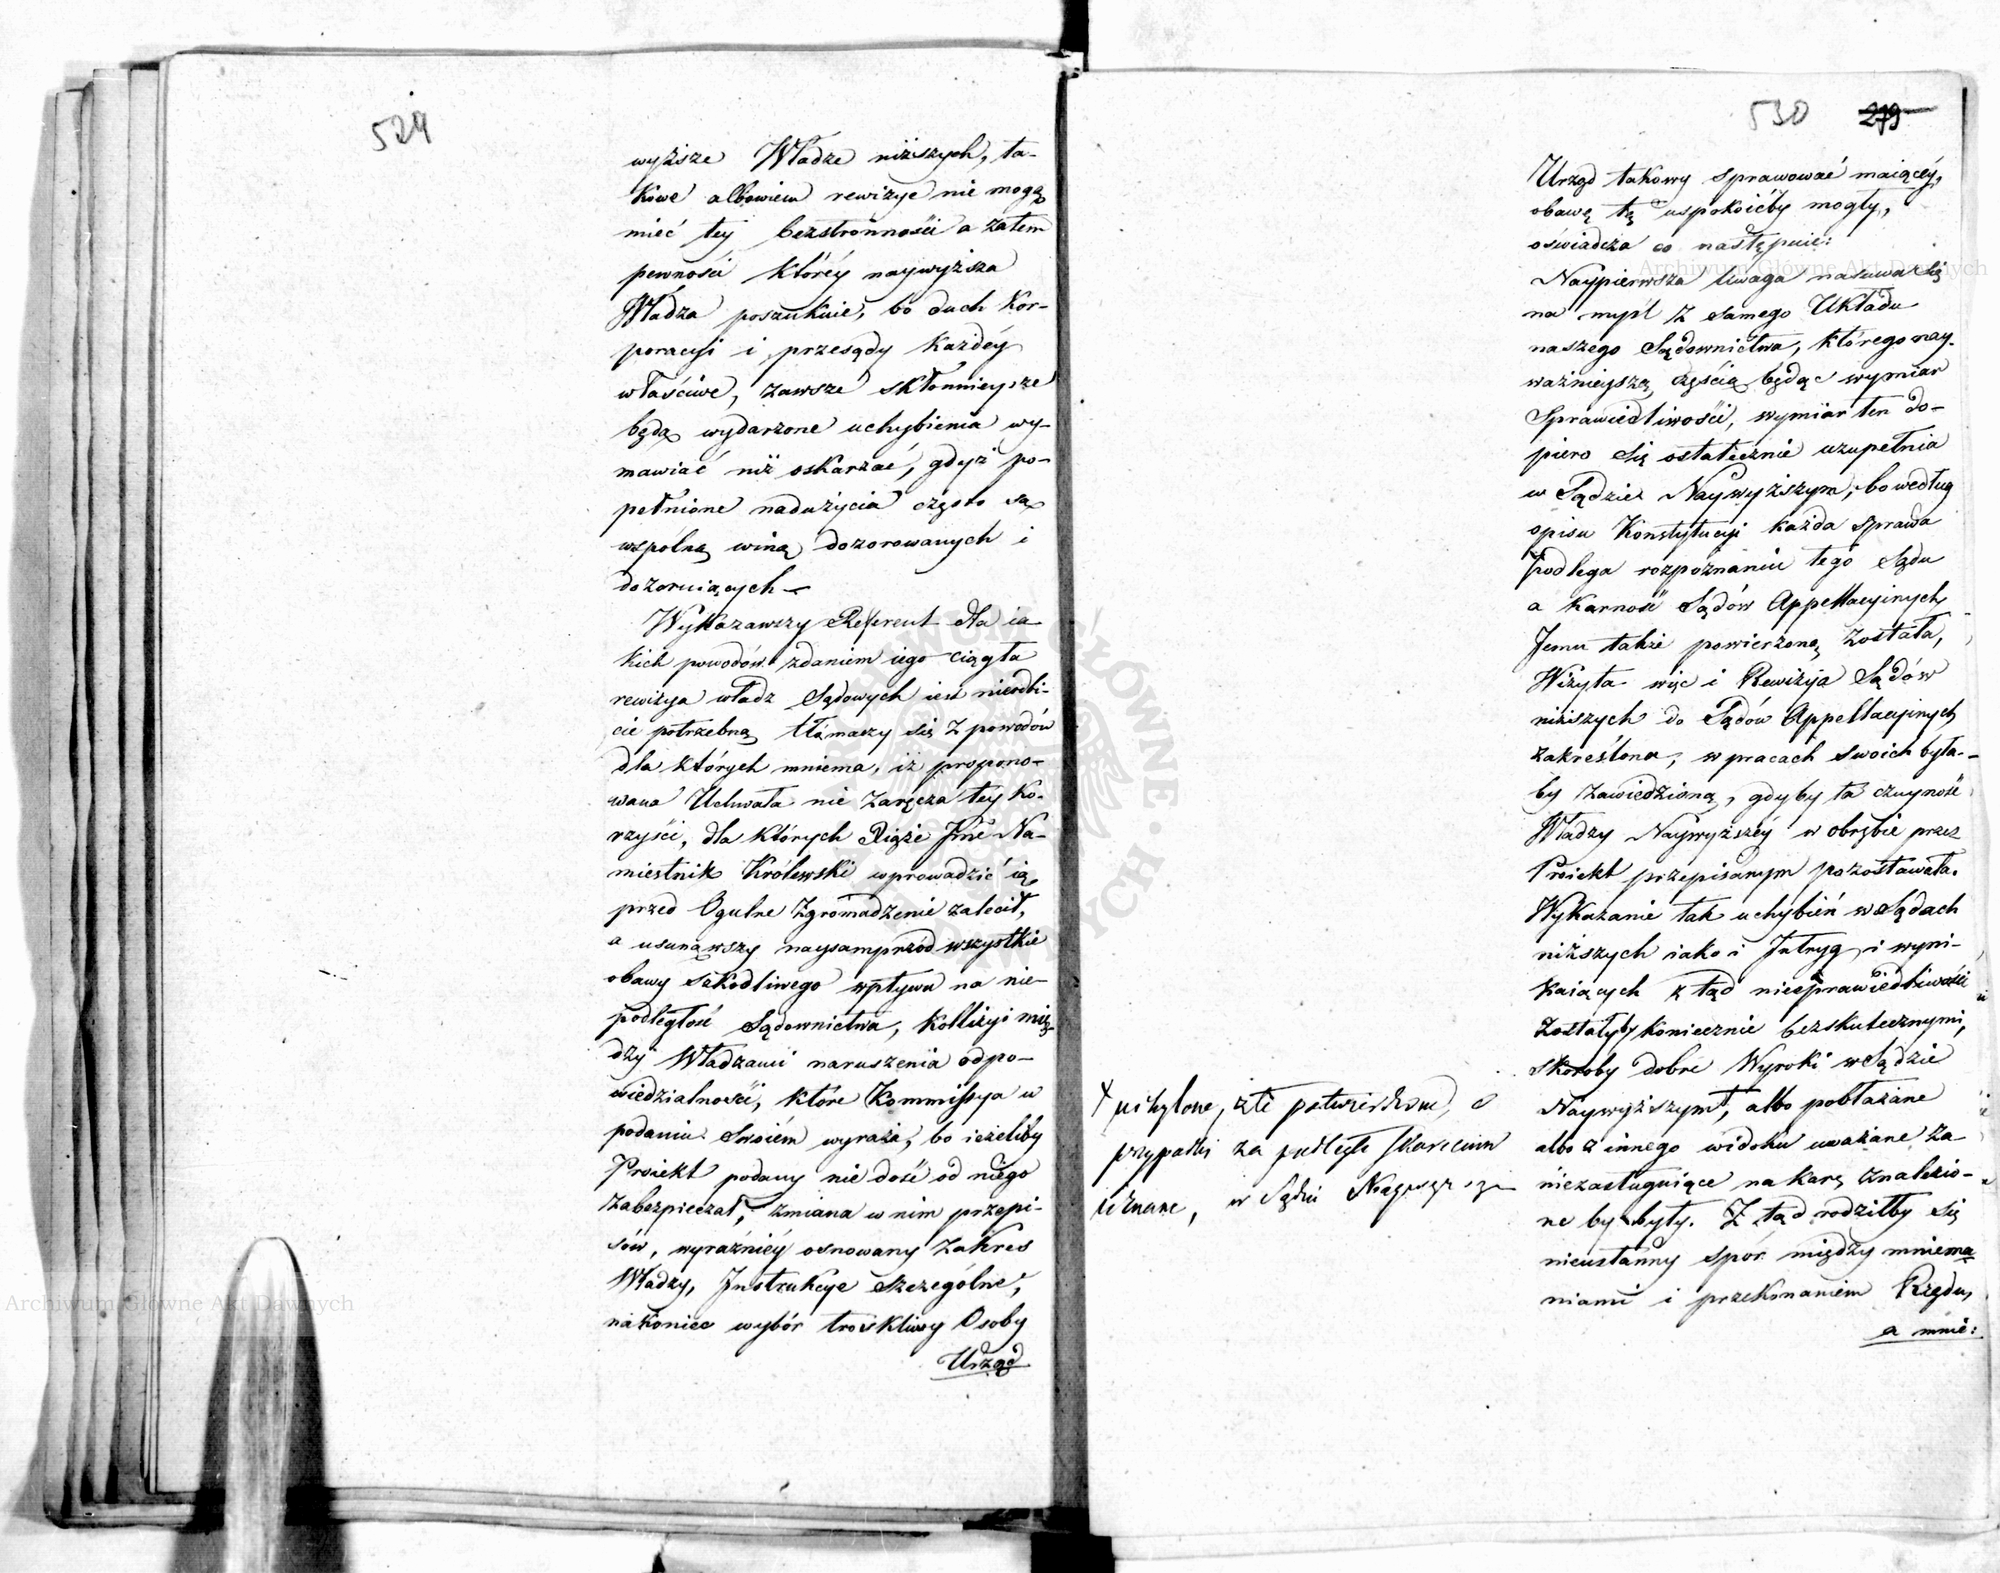 529
wyższe Władze niższych, ta-
kowe albowiem rewizye nie mogą
mieć tey bezstronności a zatem
pewności któréy naywyższa
Władza poszukuie, bo duch Kor-
poracyi i przesądy każdéy
właściwe, zawsze skłonnieysze
będą wydarzone uchybienia wy-
mawiać niż oskarżać, gdyż po-
pełnione nadużycia często są
wspolną winą dozorowanych i
dozoruiących —
Wykazawszy Referent dla ia-
kich powodów zdaniem iego ciągła
rewizya władz Sądowych iest nieodbi-
cie potrzebną tłómaczy się z powodów
dla których mniema, iż propono-
wana Uchwała nie zaręcza tey ko-
rzyści, dla których Xiąże Jmć Na-
miestnik Królewski wprowadzić ią
przed Ogulne Zgromadzenie zalecił,
a usunąwszy naysamprzód wszystkie
obawy szkodliwego wpływu na nie-
podległość Sądownictwa, kollizyi mię-
dzy Władzami naruszenia odpo-
wiedzialności, które Kommissya w
podaniu Swoiem wyraża, bo ieżeliby
Proiekt podany nie dość od niego
zabezpieczał, zmiana w nim przepi-
sów, wyraźniéy osnowany zakres
Władzy, Instrukcye szczególne,
nakoniec wybór troskliwy Osoby
Urząd
530 279
Urząd takowy sprawować maiącéy,
obawę tę uspokoićby mogły,
oświadcza co następuie:
Naypierwsza Uwaga nasuwa się
na myśl z samego Układu
naszego Sądownictwa, którego nay-
ważnieyszą częścią będąc wymiar
Sprawiedliwości, wymiar ten do-
piero się ostatecznie uzupełnia
w Sądzie Naywyższym, bo według
opisu Konstytucyi każda sprawa
podlega rozpoznaniu tego Sądu
a karność Sądów Appellacyinych
Jemu także powierzoną została,
Wizyta więc i Rewizya Sądów
niższych do Sądów Appellacyinych
zakreślona, w pracach swoich była-
by zawiedzioną, gdyby ta czuyność
Władzy Naywyższéy w obrębie przez
Proiekt przepisanym pozostawała.
Wykazanie tak uchybień w Sądach
niższych iako i Intryg i wyni-
kaiących z tąd niesprawiedliwości
zostałyby koniecznie bezskutecznymi,
skoroby dobre Wyroki w Sądzie
Naywyższym †, albo pobłażane
albo z innego widoku uważane za
niezasługuiące na karę znalezio-
ne by były. Z tąd rodziłby się
nieustanny spór między mniema-
niami i przekonaniem Rządu,
a mnie:
† uchylone, złe potwierdzone, a
przypadki za podległe skarceniu
uznane, w Sądzie Naywyższym
Archiwum Główne Akt Dawnych
Archiwum Główne Akt Dawnych